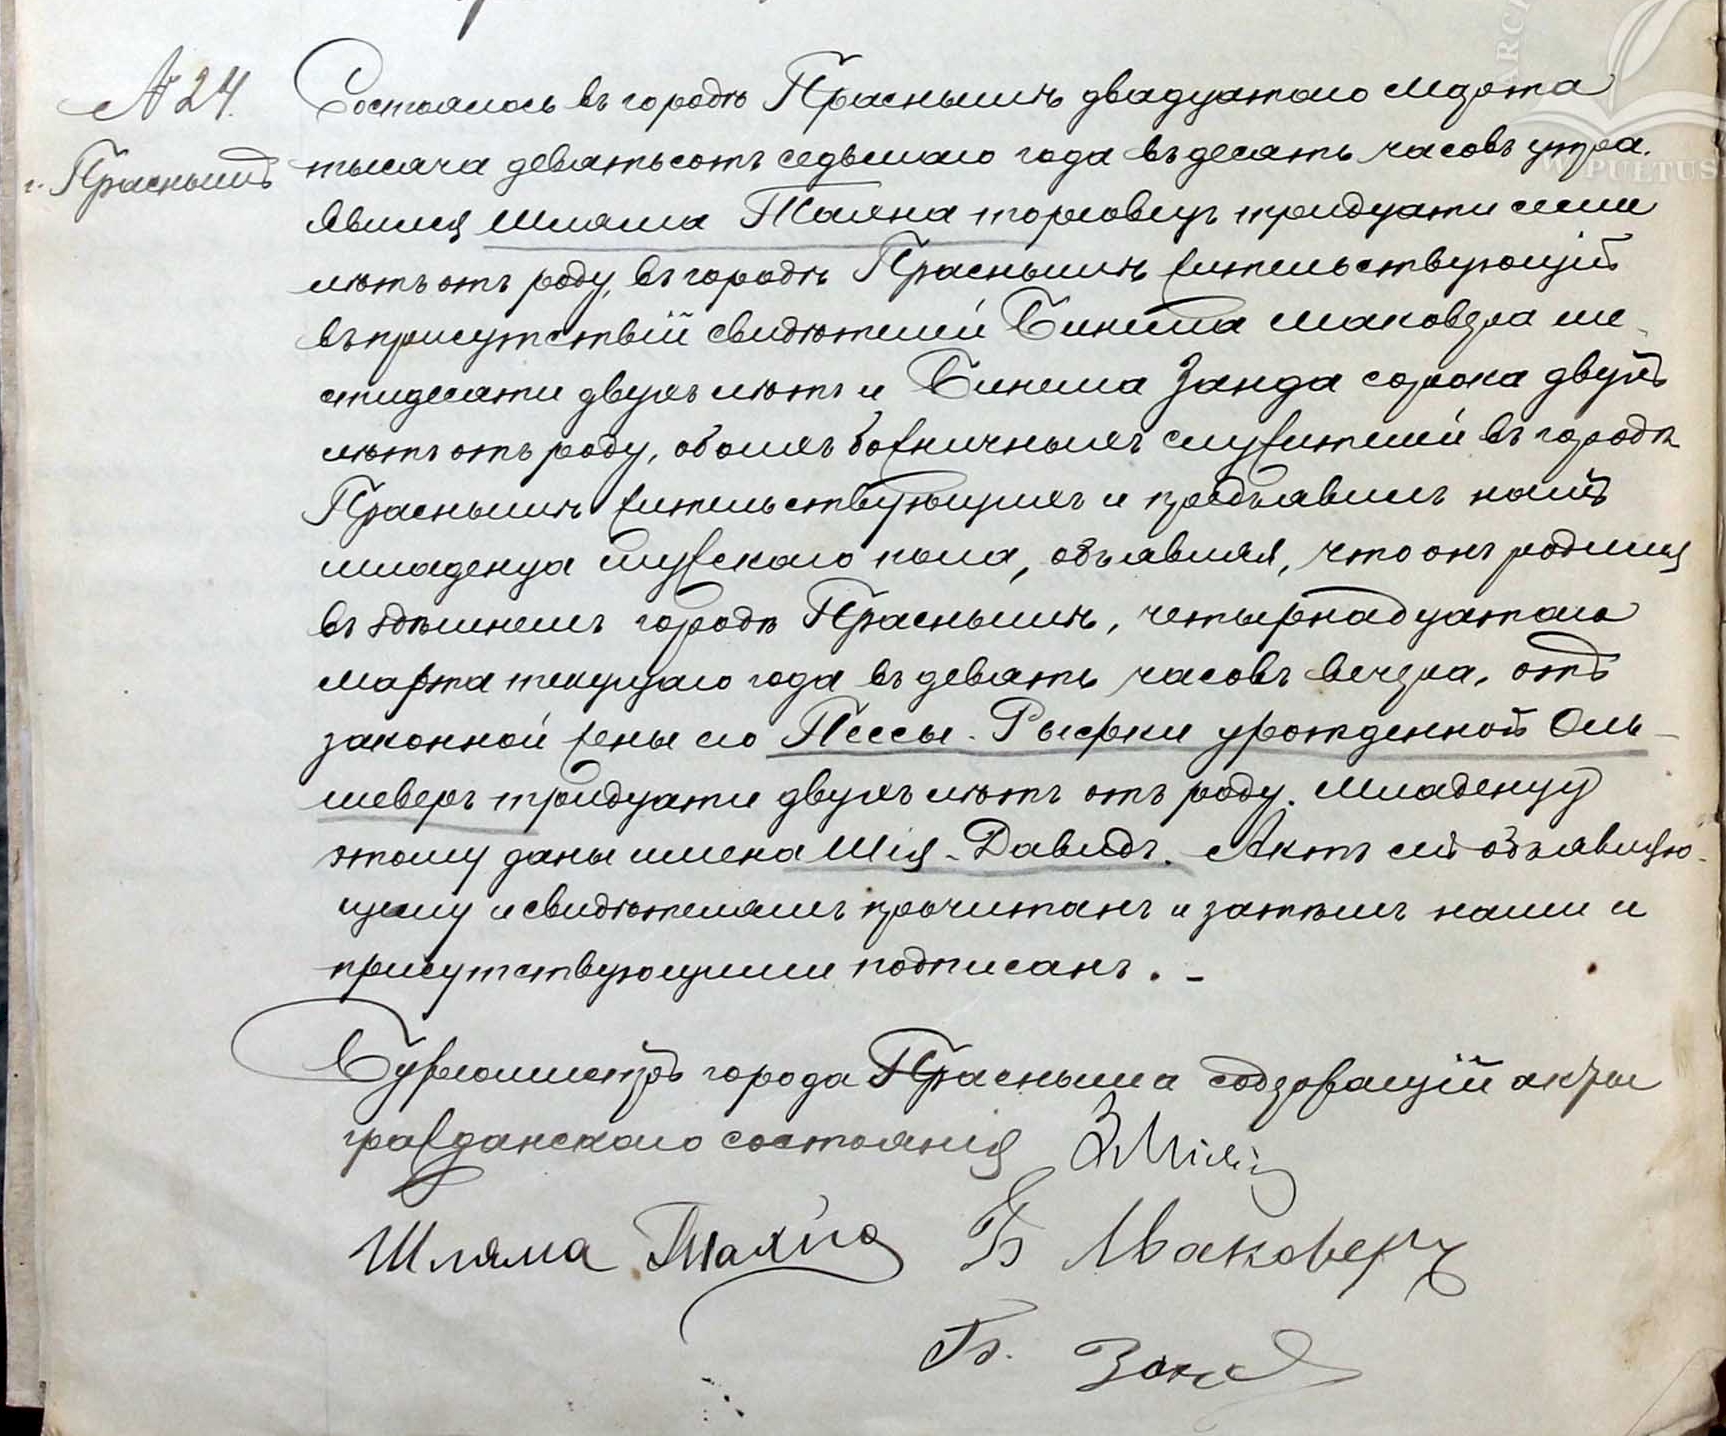 № 24.
г. Праснышъ
Состоялось въ городѣ Праснышѣ двадцатаго Марта
тысяча девятьсотъ седьмаго года въ десять часовъ утра.
Явился Шляма Тахна торговецъ тридцати семи
лѣтъ отъ роду, въ городѣ Праснышѣ жительствующій
въ присутствіи свидѣтелей Бинема Маковера ше-
стидесяти двухъ лѣтъ и Бинема Занда сорока двухъ
лѣтъ отъ роду, обоихъ божничныхъ служителей въ городѣ
Праснышѣ жительствующихъ и предъявилъ намъ
младенца мужскаго пола, объявляя, что онъ родился
въ здѣшнемъ городѣ Праснышѣ, четырнадцатаго
Марта текущаго года въ девять часовъ вечера, отъ
законной жены его Пессы-Рыфки урожденной Оль-
шеверъ тридцати двухъ лѣтъ отъ роду. Младенцу
этому даны имена Шія-Давидъ. Актъ сей объявляю-
щему и свидѣтелямъ прочитанъ и затѣмъ нами и
присутствующими подписанъ. -
Бургомистръ города Прасныша содержащій акты
гражданскаго состоянія
Шляма
Б Маковеръ
Б. Занд
ARCH
W PUŁTUS